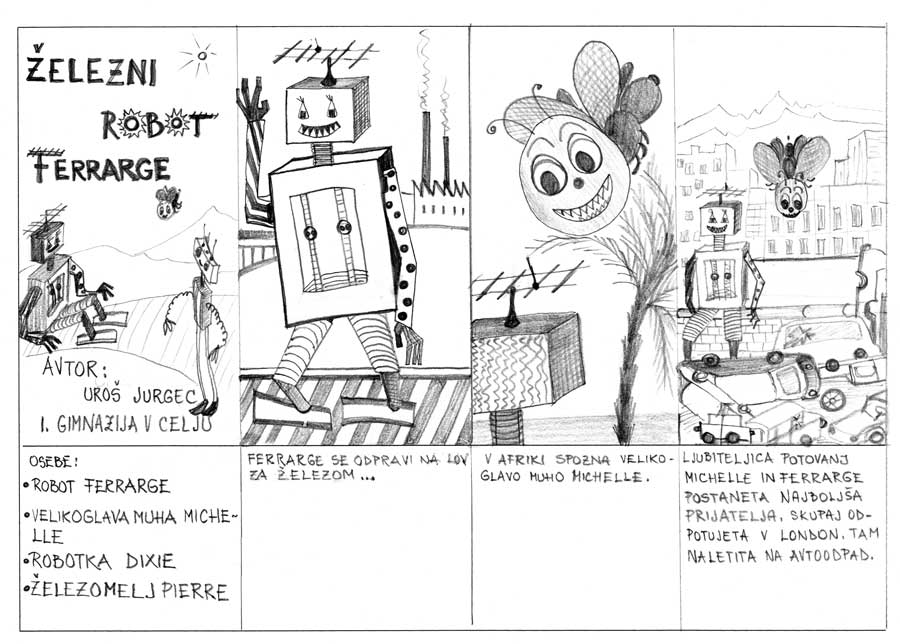 ŽELEZNI
ROBOT
FERRARGE
AVTOR:
UROŠ JURGEC
I. GIMNAZIJA V CELJU
OSEBE:
•ROBOT FERRARGE
•VELIKOGLAVA MUHA MICHE-
LLE
•ROBOTKA DIXIE
•ŽELEZOMELJ PIERRE
FERRARGE SE ODPRAVI NA LOV
ZA ŽELEZOM...
V AFRIKI SPOZNA VELIKO-
GLAVO MUHO MICHELLE.
LJUBITELJICA POTOVANJ
MICHELLE IN FERRARGE
POSTANETA NAJBOLJŠA
PRIJATELJA. SKUPAJ OD-
POTUJETA V LONDON. TAM
NALETITA NA AVTOODPAD.